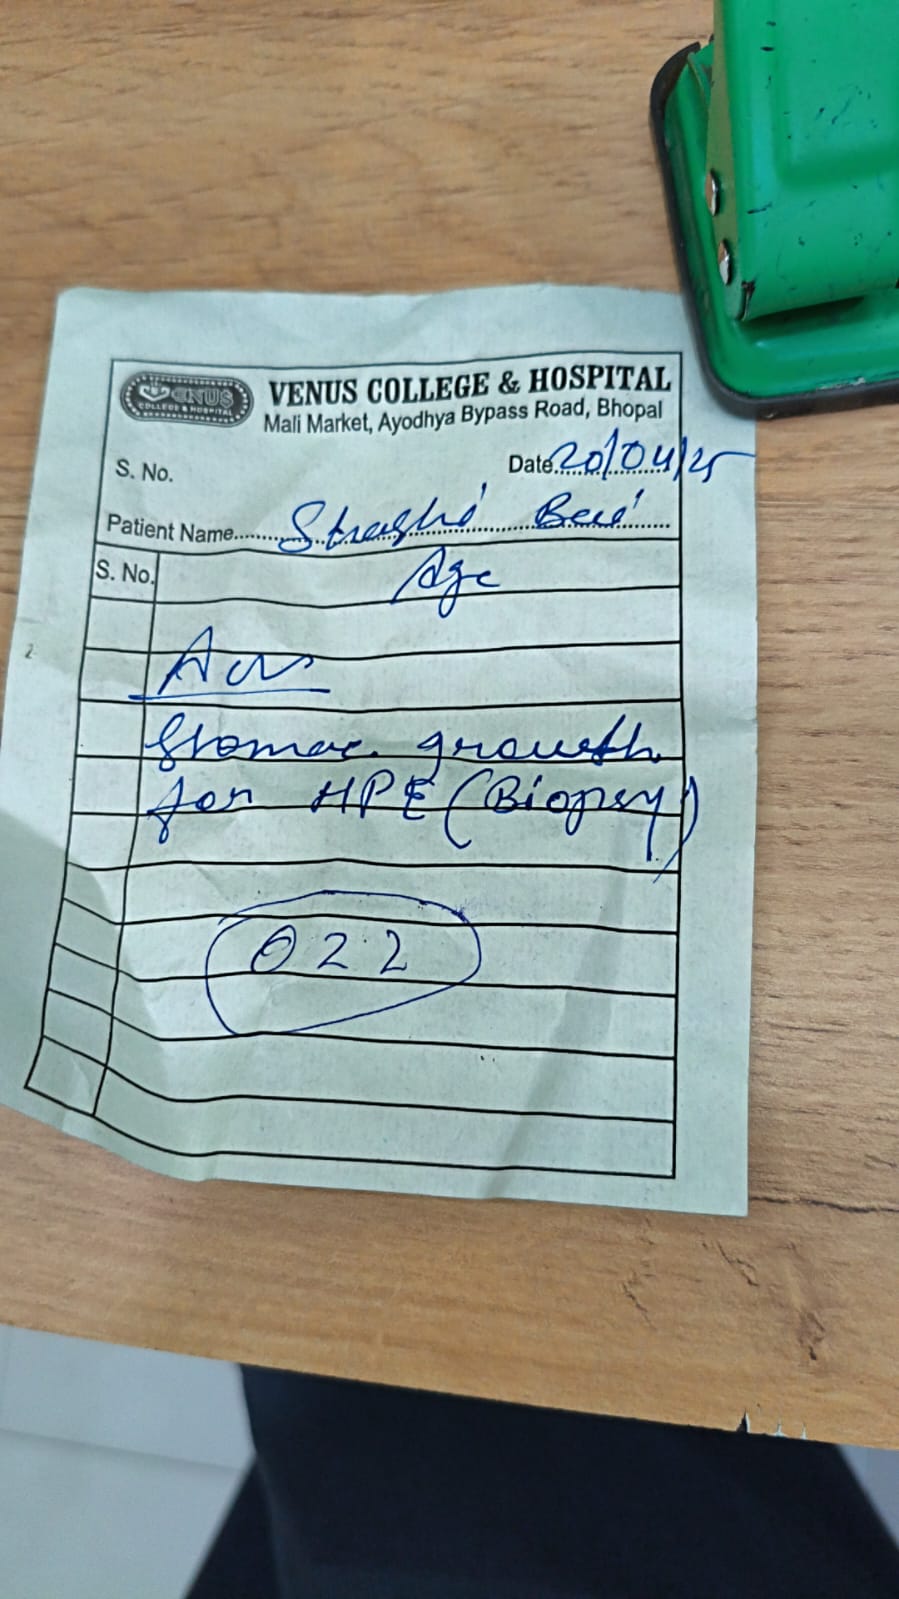 VENUS
COLLEGE & HOSPITAL
VENUS COLLEGE & HOSPITAL
Mali Market, Ayodhya Bypass Road, Bhopal
S. No.
Date 20/04/25
Patient Name
S. No.
Age
Adv
Stomac. growth
for HPE (Biopsy)
022